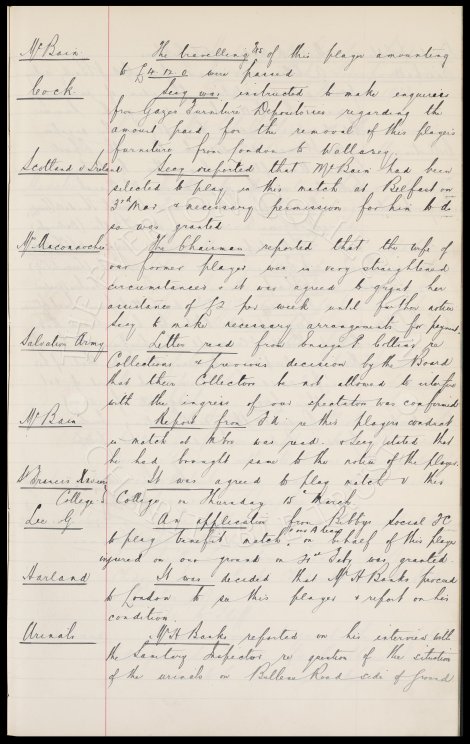 McBain The travelling Exs of this player amounting
to £4.12.0 were passed
Cock Secy was instructed to make enquiries
from Gazes Furniture Depositories regarding the
amount paid for the removal of this players
furniture from London to Wallasey.
Scotland v Ireland Secy reported that McBain had been
selected to play in this match at Belfast on
3rd Mar & necessary permission for him to do
so was granted
Mrs Maconnachie The Chairman reported that the wife of
our former player was in very straightened
circumstances & it was agreed to grant her
assistance of £2 per week until further notice
Secy to make necessary arrangements for payment.
Salvation Army Letter read from Ensign P Collins re
Collections & previous decision by the Board
that their Collectors be not allowed to interfere
with the ingress of our spectators was confirmed
McBain Report from F.A. re this players conduct
in match at was read. & Secy stated that
he had brought same to the notice of the player.
St Francis Xaviers It was agreed to play match v this
College College on Thursday 15th March
Lee G An application from Bibbys Social FC
to play benefit match on behalf of this player
injured on our ground on was granted.
Harland It was decided that Mr H Banks proceed
to London to see this player & report on his
condition.
Urinals Mr H Banks reported on his interview with
the Sanitary Inspector re question of the situation
of the urinals on Bullens Road side of Ground